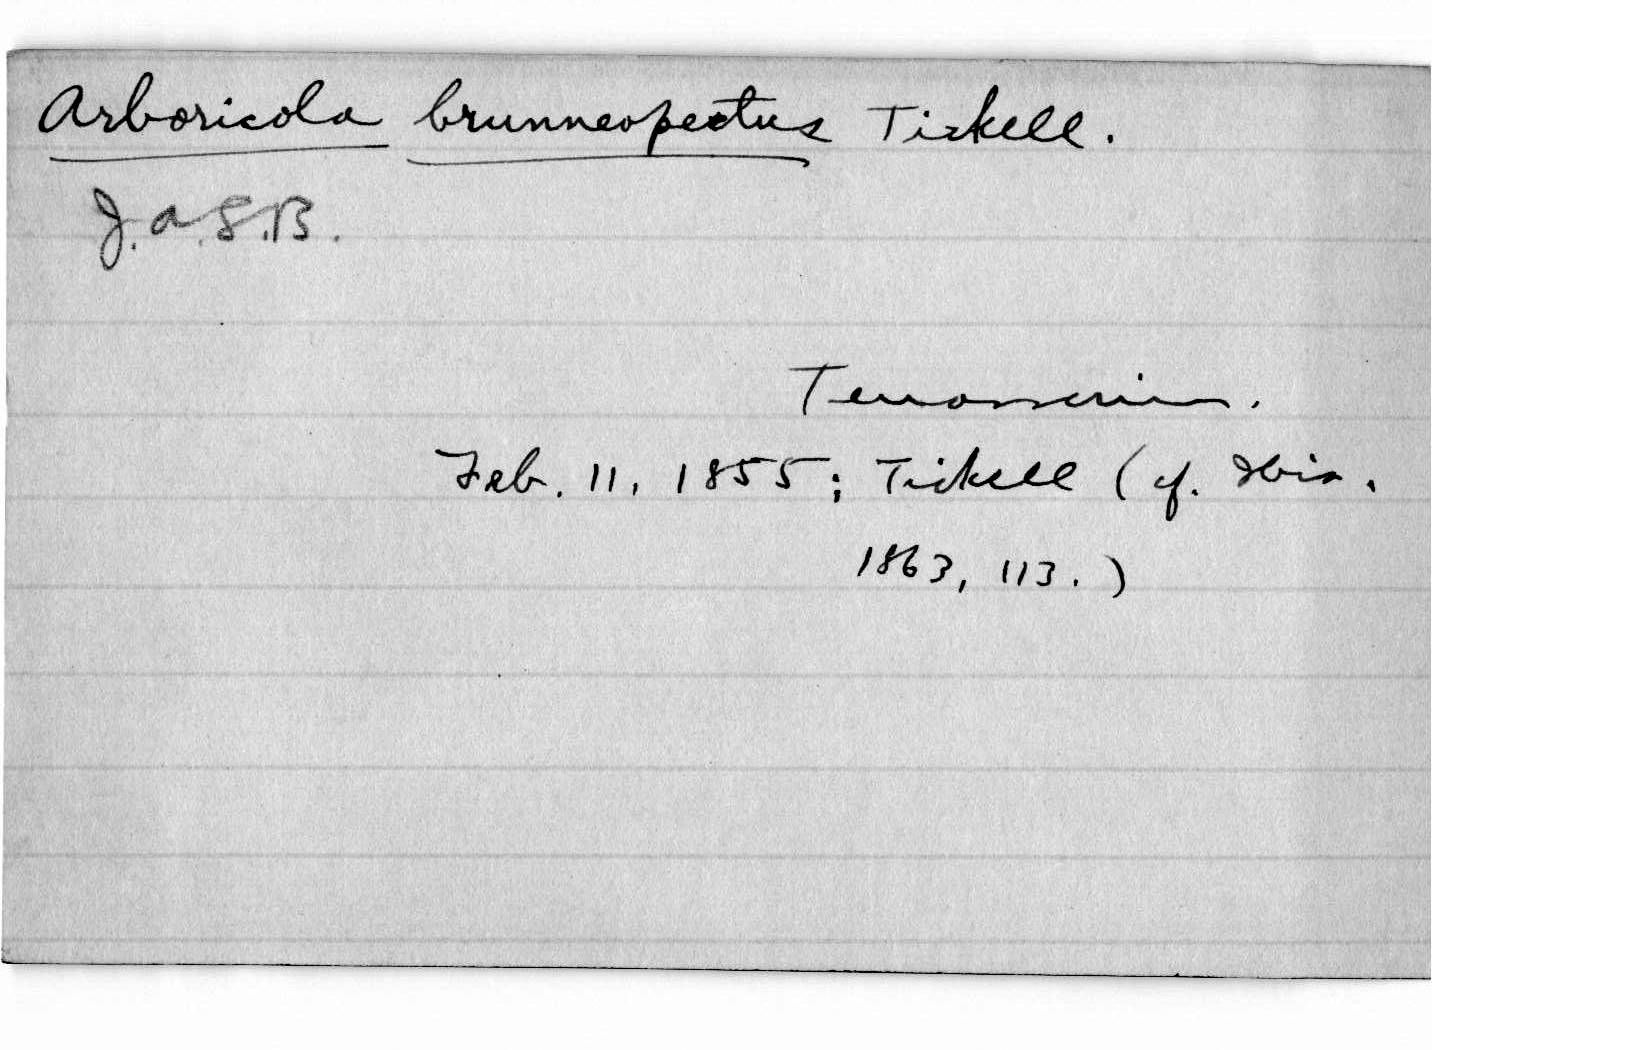 Arboricola brunneopectus Tickell.
J.A.S.B.
Tenasserim.
Feb. 11, 1855; Tickell (cf. Ibis.
1863, 113.)